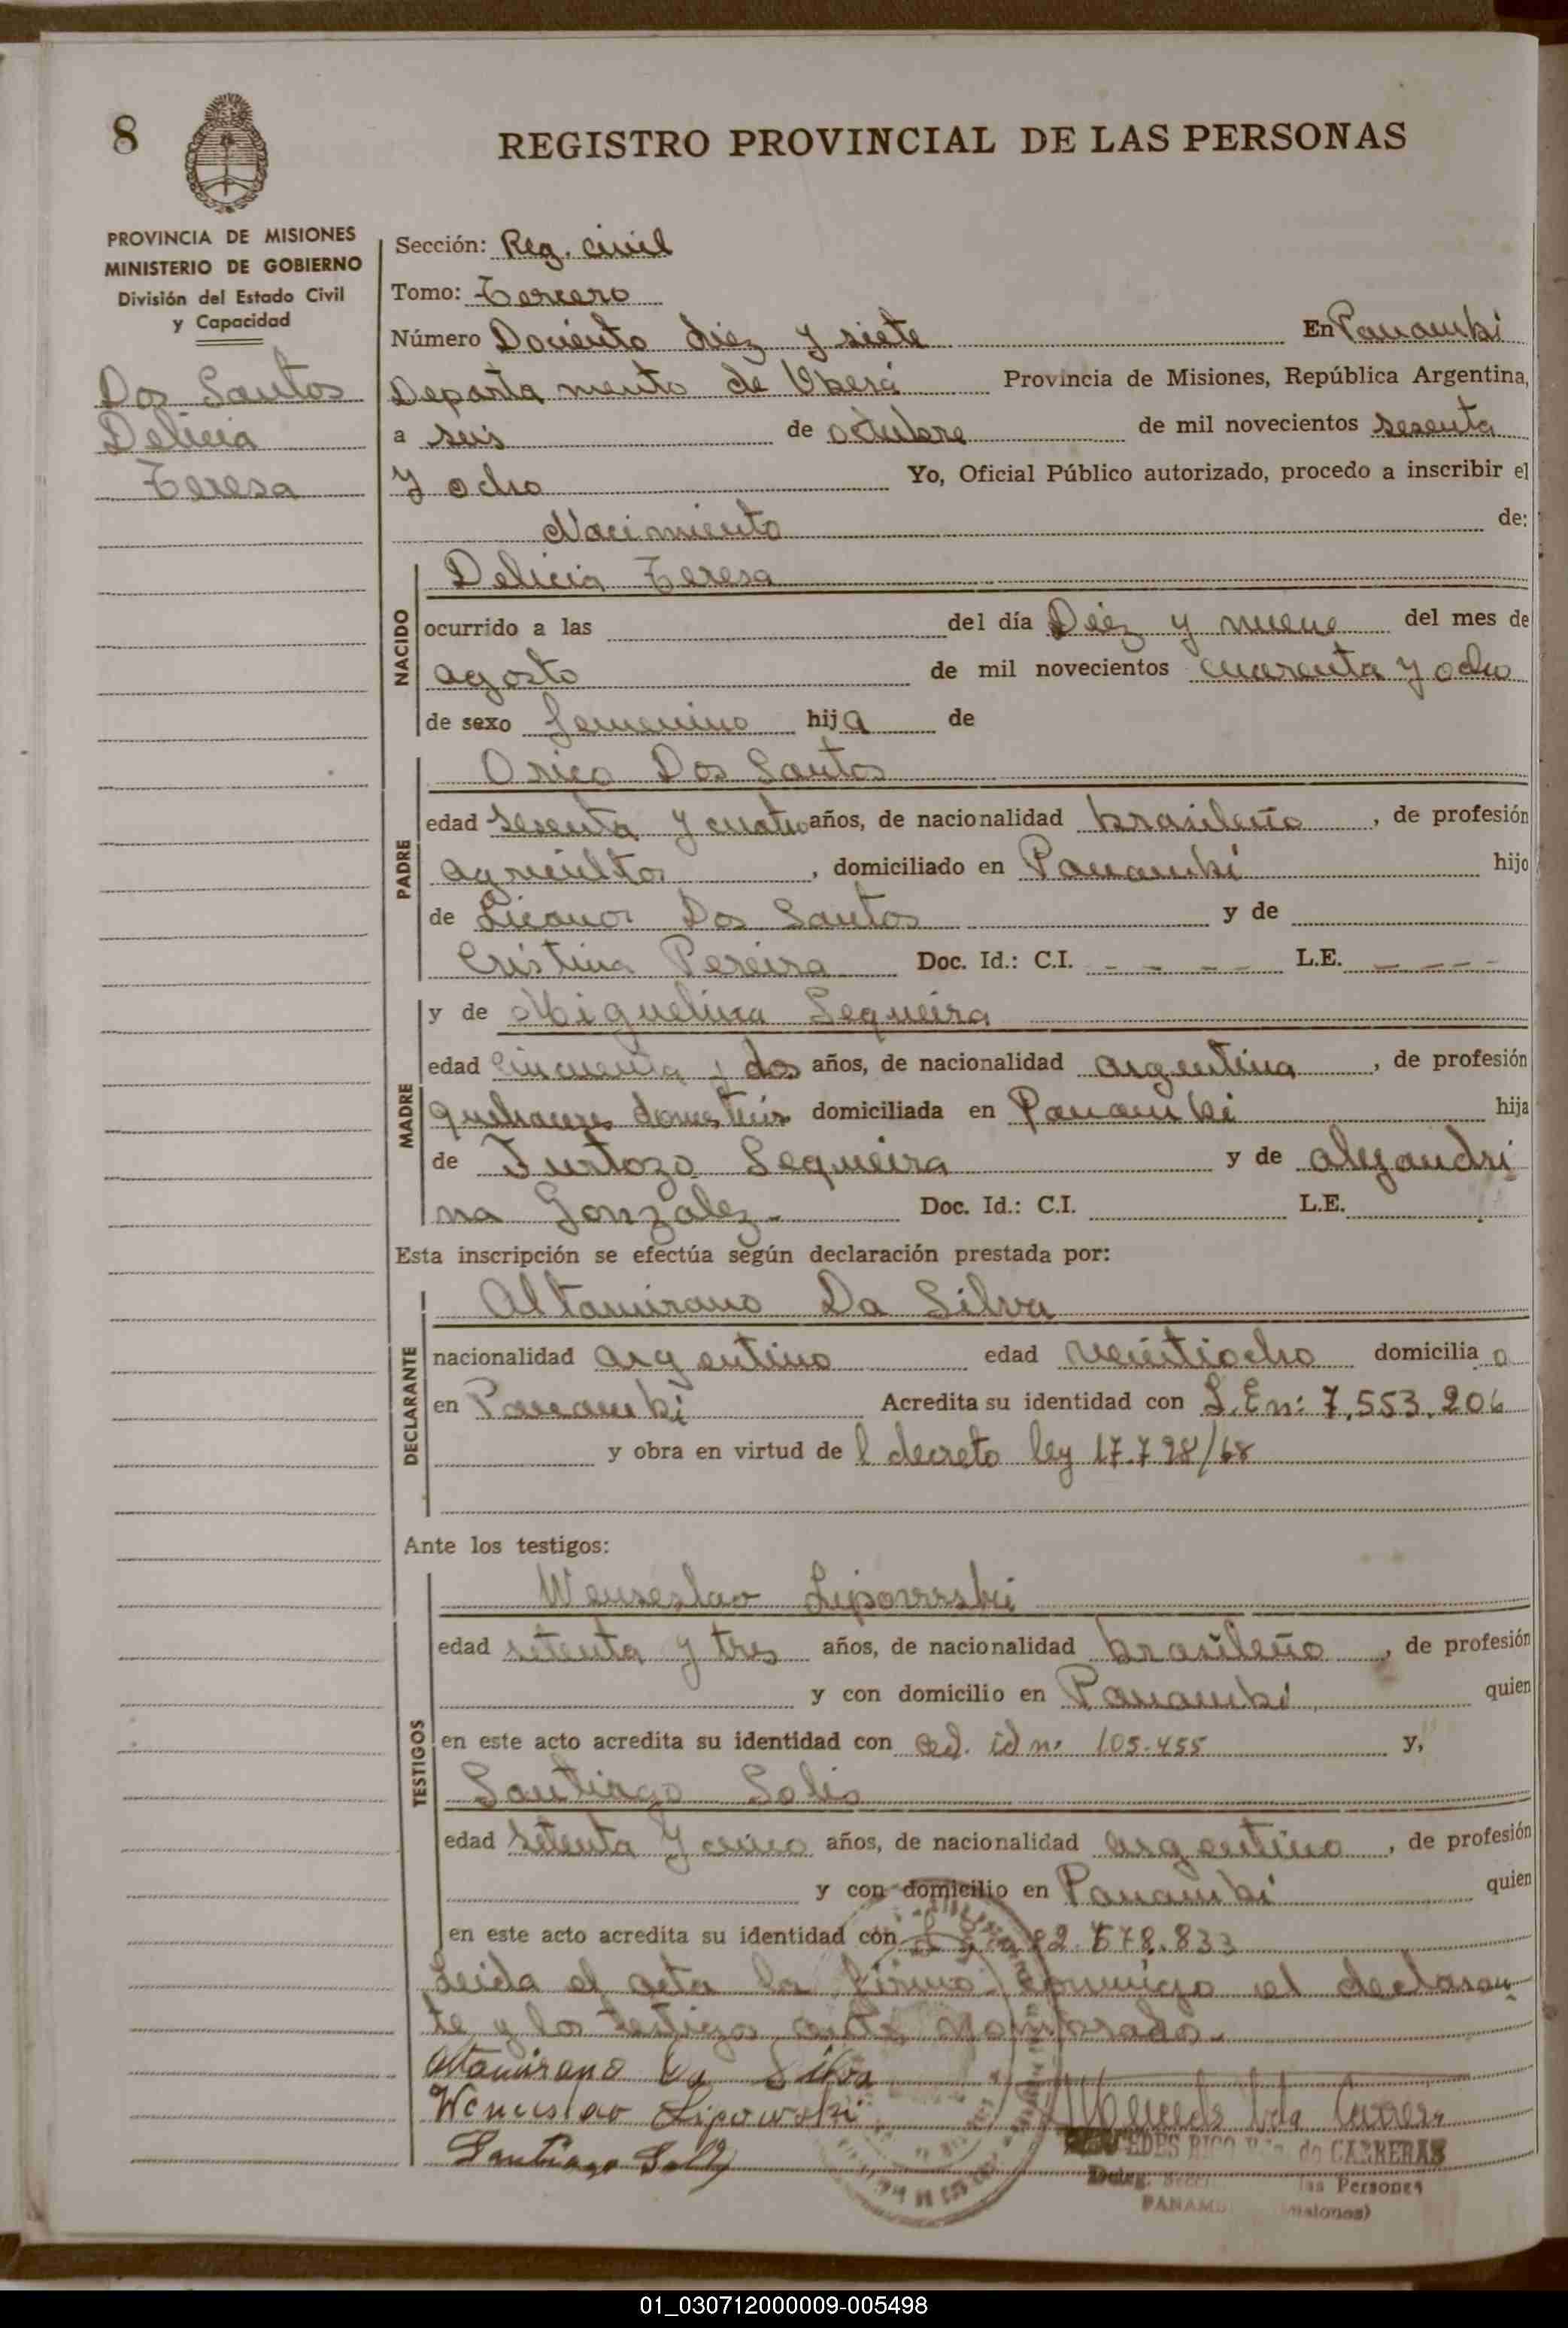 8
REGISTRO PROVINCIAL DE LAS PERSONAS
PROVINCIA DE MISIONES
MINISTERIO DE GOBIERNO
División del Estado Civil
y Capacidad
Dos Santos
Delicia
Teresa
Sección: Reg. civil
Tomo: Tercero
Número Dociento diez y siete En Panambí
Departamento de Oberá Provincia de Misiones, República Argentina,
a seis de octubre de mil novecientos sesenta
y ocho Yo, Oficial Público autorizado, procedo a inscribir el
Nacimiento de:
NACIDO
Delicia Teresa
ocurrido a las del día Diez y nueve del mes de
agosto de mil novecientos cuarenta y ocho
de sexo femenino hija de
PADRE
Dos Santos
edad sesenta y cuatro años, de nacionalidad brasileño, de profesión
agricultor, domiciliado en Panambí hijo
de Licanor Dos Santos y de
Cristina Pereira Doc. Id.: C.I. - - - - L.E. - - - -
MADRE
y de Miguelina Sequeira
edad cincuenta y dos años, de nacionalidad argentina, de profesión
quehaceres domiciliada en Panambí hija
de Sequeira y de alejandri
na Gonzalez.- Doc. Id.: C.I. L.E.
Esta inscripción se efectúa según declaración prestada por:
DECLARANTE
Altamirano Da Silva
nacionalidad argentino edad veintiocho domicilia o
en Panambí Acredita su identidad con L.E nº 7,553.206
y obra en virtud de l decreto ley 17.798/68
Ante los testigos:
TESTIGOS
Wenseslao Lipovvski
edad setenta y tres años, de nacionalidad brasileño, de profesión
y con domicilio en Panambí quien
en este acto acredita su identidad con ced. id nº 105.455 y,
Santiago Solis
edad setenta y cinco años, de nacionalidad argentino, de profesión
y con domicilio en Panambí quien
en este acto acredita su identidad con 678.833
Leida el acta la firma conmigo el declaran
te y los testigos nombrados.-
Altamirano Da Silva
Wenceslao Lipowski
Santiago Solis
RICO Vda. de CARRERAS
las Personas
PANAMBI
01_030712000009-005498